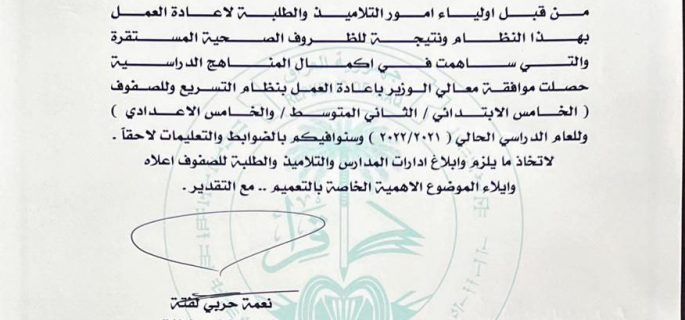 من قبل اولياء امور التلاميذ والطلبة لاعادة العمل
بهذا النظام ونتيجة للظروف الصحية المستقرة
والتي ساهمت في اكمال المناهج الدراسية
حصلت موافقة معالي الوزير باعادة العمل بنظام التسريع وللصفوف
( الخامس الابتدائي / الثاني المتوسط / والخامس الاعدادي )
وللعام الدراسي الحالي ( ٢٠٢٢/٢٠٢١ ) وسنوافيكم بالضوابط والتعليمات لاحقاً .
لاتخاذ ما يلزم وابلاغ ادارات المدارس والتلاميذ والطلبة للصفوف اعلاه
وايلاء الموضوع الاهمية الخاصة بالتعميم .. مع التقدير .
نعمة حربي لفتة